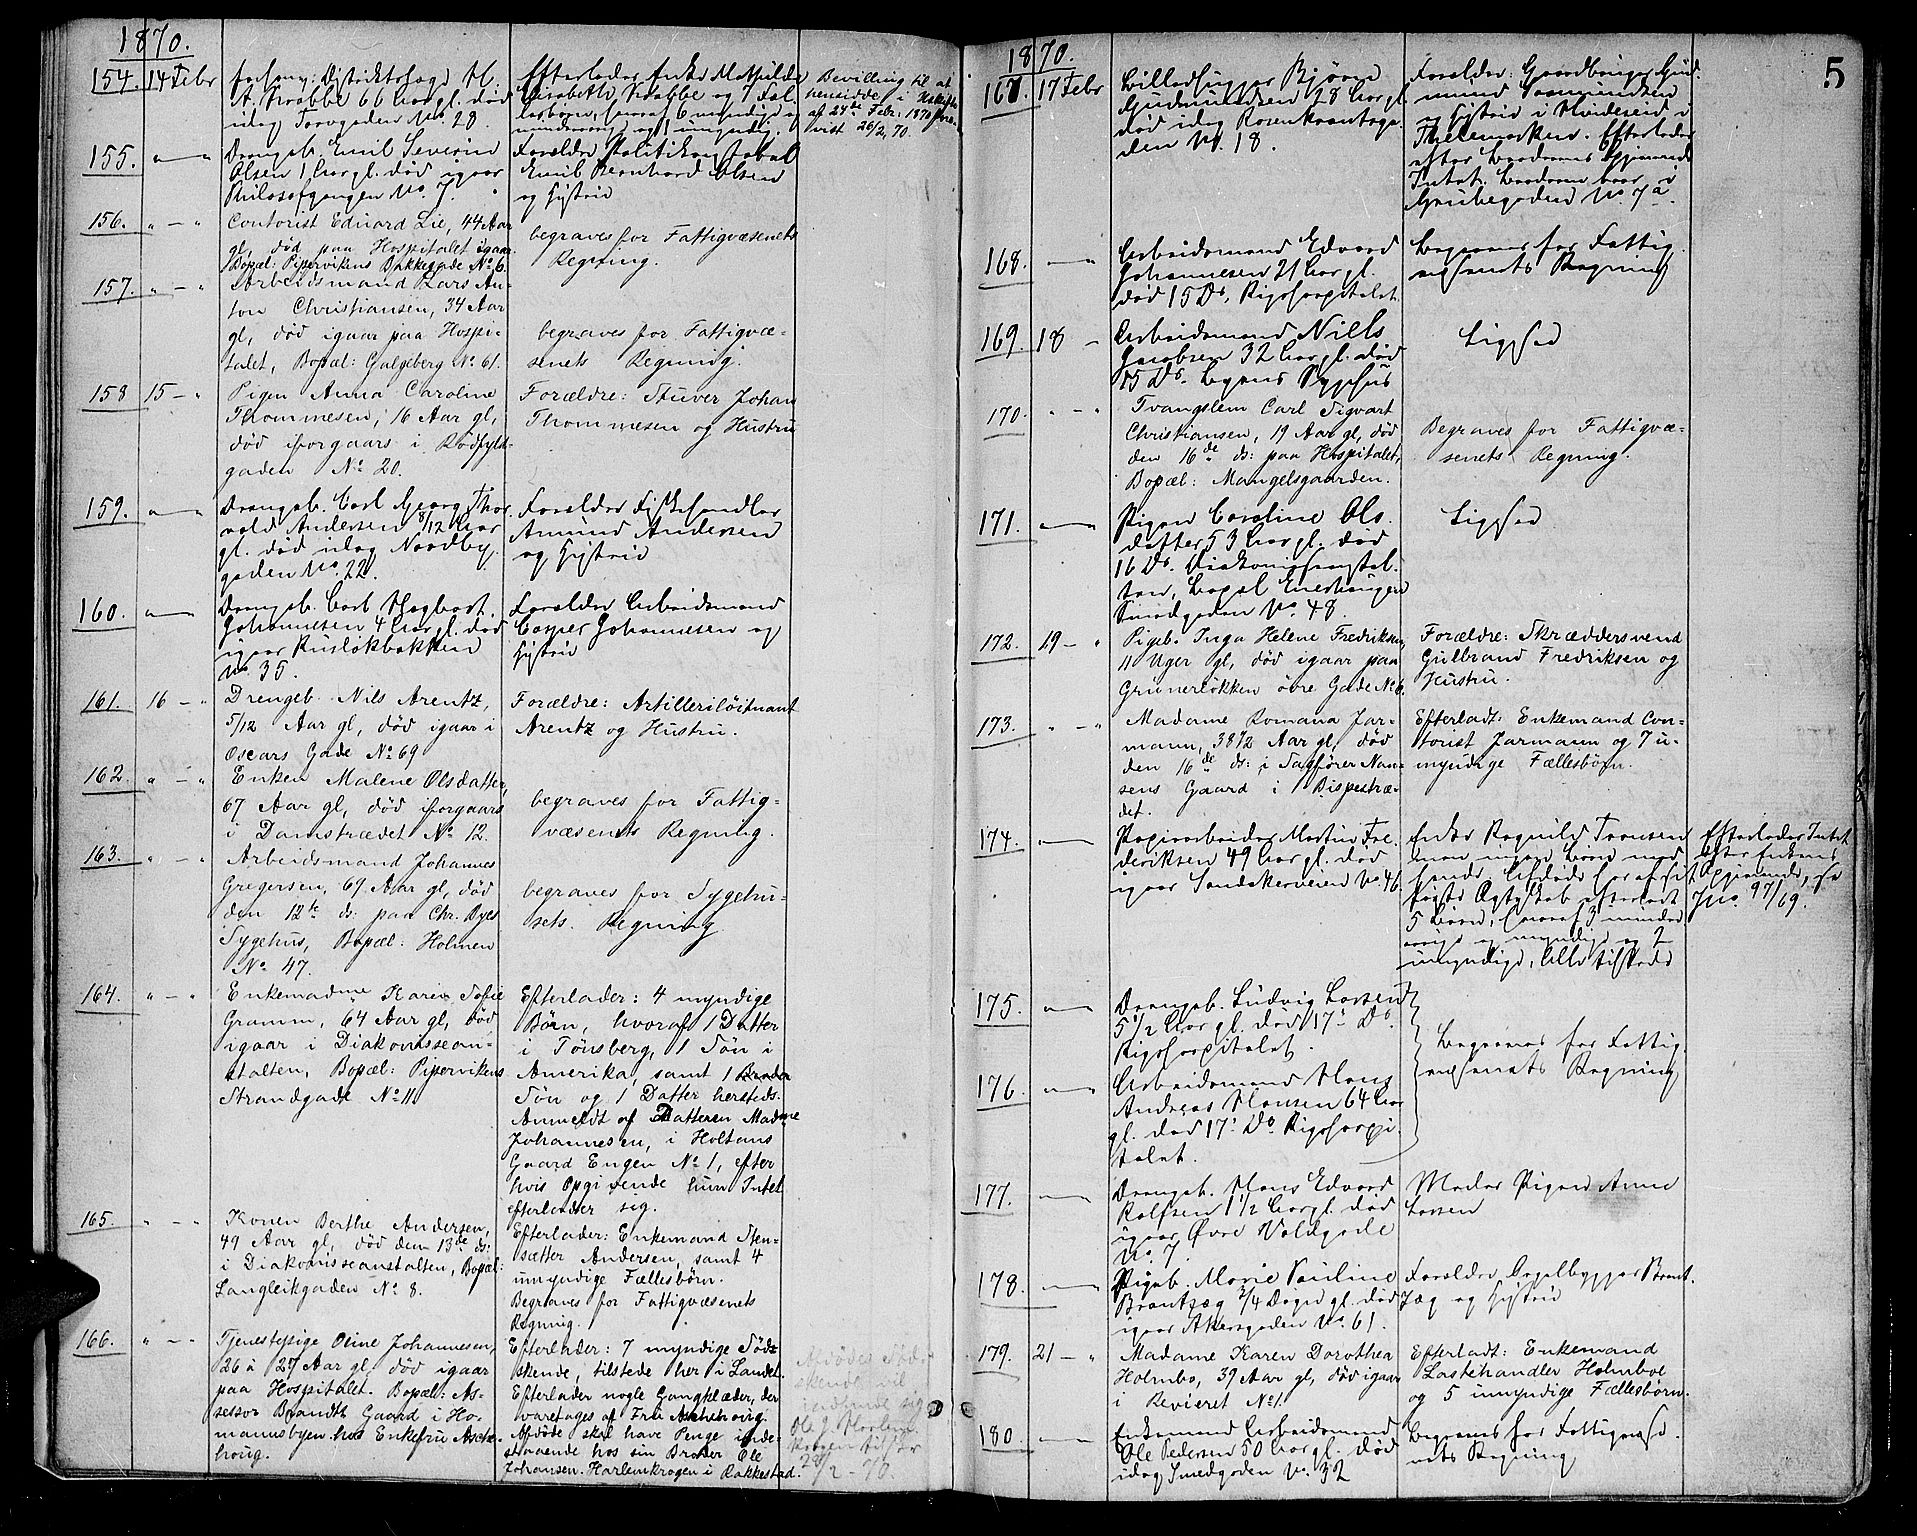 1870.
154. 14 Febr
A. Krabbe 66 Aar gl. død
idag Torvgaden No. 28.
Efterlader Enke Mathilde
Elisabeth Krabbe og 7 Fæl-
lesbørn, hvoraf 6 myndige og
og 1 umyndig.
Bevilling til at
hensidde i uskiftet
af 24de Febr. 1870
vist 26/2 70.
155.
Drengeb. Emil Severin
Olsen 1 Aar gl. død igaar
Philosofgangen No. 7.
Forældre Politikonstabel
Emil Bernhard Olsen
og Hustru
156. " — "
Contorist Eduard Lie, 44 Aar
gl, død paa Hospitalet igaar.
Bopæl: Pipervikens Bakkegade No 6.
begraves for Fattigvæsenets
Regning.
157. " — "
Arbeidsmand Lars An-
ton Christiansen, 34 Aar
gl, død igaar paa Hospi-
talet, Bopæl: Galgeberg No 61.
begraves for Fattigvæ-
senets Regning.
158 15 — "
Pigen Anna Caroline
Thommesen, 16 Aar gl,
død iforgaars i Rødfyld-
gaden No 20.
Forældre: Stuver Johan
Thommesen og Hustru
159.
Drengeb. Carl Georg Thor-
vald Andersen 8/12 Aar
gl. død idag Nordby-
gaden No. 22.
Forældre Fiskehandler
Amund Andersen
og Hustru
160.
Drengeb. Carl Hagbart
Johannesen 4 Aar gl. død
igaar Ruseløkbakken
No. 35.
Forældre Arbeidsmand
Casper Johannesen og
Hustru
161. 16 — "
Drengeb. Nils Arentz,
5/12 Aar gl, død igaar i
Oscars Gade No 69
Forældre: Artilleriløitnant
Arentz og Hustru.
162. " — "
Enken Malene Olsdatter,
67 Aar gl, død iforgaars
i Damstrædet No 12.
begraves for Fattig-
væsenets Regning.
163. " — "
Arbeidsmand Johannes
Gregersen, 69 Aar gl, død
den 12te ds: paa Chr. Byes
Sygehus, Bopæl: Holmen
No 47.
begraves for Sygehu-
sets Regning
164. " — "
Enkemadme Karen Sofie
Gramm, 64 Aar gl, død
igaar i Diakonissean-
stalten, Bopæl: Pipervikens
Strandgade No 11.
Efterlader: 4 myndige
Børn, hvoraf 1 Datter
i Tønsberg, 1 Søn i
Amerika, samt 1 Broder
Søn og 1 Datter hersteds.
Anmeldt af Datteren Madme
Johannesen, i Holtans
Gaard Engen No 1, efter
hvis Opgivende hun Intet
efterlader sig.
165. " — "
Konen Berthe Andersen,
49 Aar gl, død dem 13de ds:
i Diakonisseanstalten, Bopæl:
Langleikgaden No 8.
Efterlader: Enkemand Sten-
sætter Andersen, samt 4
umyndige Fællesbørn.
Begraves for Fattigvæsenets
Regning.
166. " — "
Tjenestepige Oline Johannesen,
26 à 27 Aar gl, død igaar
paa Hospitalet. Bopæl: As-
sessor Brandts Gaard i Ho-
mansbyen hos Enkefru Asche-
houg.
Efterlader: 7 myndige Sød-
skende, tilstede her i Landet.
Efterlader nogle Gangklæder, der
varetages af Fru Aschehoug.
Afdøde skal have Penge inde-
staaende hos sin Broder Ole
Johansen. Harlemkrogen i Rakkestad.
Afdødes Sød-
skende vil
28/2 - 70.
1870.
5
167. 17 Febr
Billedhugger Bjørn
Gudmundsen 28 Aar gl.
død idag Rosenkrantzga-
den No. 18.
Forældre: Gaardbruger Gud-
mund
og Hustru i Hvideseid i
Thelemarken. Efterlader
efter Opgivende
Intet.
Grubegaden No. 7a.
168.
Arbeidsmand Edvard
Johannesen 21 Aar gl.
død 15 Ds. Rigshospitalet.
Begraves for Fattig-
væsenets Regning
169. 18 —
Arbeidsmand Niels
Jacobsen 32 Aar gl. død
15 Ds. Byens Sygehus
Ligesaa
170. " — "
Tvangslem Carl Sigvart
Christiansen, 19 Aar gl, død
den 16de ds: paa Hospitalet,
Bopæl: Mangelsgaarden.
Begraves for Fattigvæ-
senets Regning.
171.
Pigen Caroline Ols-
datter 53 Aar gl. død
16 Ds. Diakonisseanstal-
ten, Bopæl Enerhaugen
Smedgaden No. 48.
Ligesaa
172. 19 — "
Pigeb. Inga Helene Fredriksen,
11 Uger gl, død igaar paa
Grünerløkken øvre Gade No 6.
Forældre: Skræddersvend
Gulbrand Fredriksen og
Hustru.
173. " — "
Madame Romana Jar-
mann, 38 1/2 Aar gl, død
den 16de ds: i Sagfører Nan-
sens Gaard i Bispestræ-
det.
Efterladt: Enkemand Con-
torist Jarmann og 7 u-
myndige Fællesbørn.
174.
Papirarbeider Martin Fre-
deriksen 49 Aar gl. død
igaar Sandakerveien No. 46.
Enke Ragnild Tronsen
men ingen Børn med
hende. Afdøde har af sit
første Ægteskab efterladt
5 Børn, hvoraf 3 mindre-
aarige og myndige og 2
umyndige, alle tilstede
Efterlader Intet
efter Enkens
Opgivende, se
Jno. 971/69.
175.
Drengeb. Ludvig Larsen
5 1/2 Aar gl. død 17 Ds.
Rigshospitalet.
Begraves for Fattig-
væsenets Regning
176.
Arbeidsmand Hans
Andreas Hansen 64 Aar
gl. død 17 Ds Rigshospi-
talet.
177.
Drengeb. Hans Edvard
Rolfsen 1 1/2 Aar gl. død
igaar Øvre Voldgade
No. 7
Moder Pigen Anne
Larsen
178.
Pigeb. Marie Pauline
Brantzæg 3/4 Døgn gl. død
igaar Akersgaden No. 61.
Forældre Orgelbygger Brant-
zæg og Hustru
179. 21 — "
Madame Karen Dorothea
Holmbo, 39 Aar gl, død igaar
i Revieret No 1
Efterladt: Enkemand
Lastehandler Holmboe
og 5 umyndige Fællesbørn.
180.
Enkemand Arbeidsmand
Ole Pedersen 50 Aar gl. død
idag Smedgaden No. 32
Begraves for Fattigvæse-
nets Regning